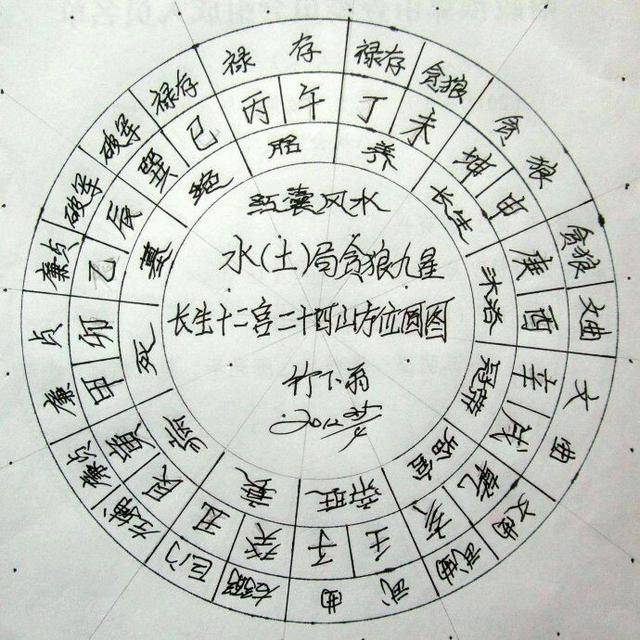 禄存
禄存
贪狼
贪狼
贪狼
文曲
文曲
文曲
武曲
武曲
右弼
巨门
左辅
廉贞
廉贞
廉贞
破军
破军
禄存
丙
午
丁
未
坤
申
庚
酉
辛
戌
乾
亥
壬
子
癸
丑
艮
寅
甲
卯
乙
辰
巽
巳
胎
养
长生
沐浴
冠带
临官
帝旺
衰
病
死
墓
绝
红囊风水
水(土)局贪狼九星
长生十二宫二十四山方位画图
竹下雨